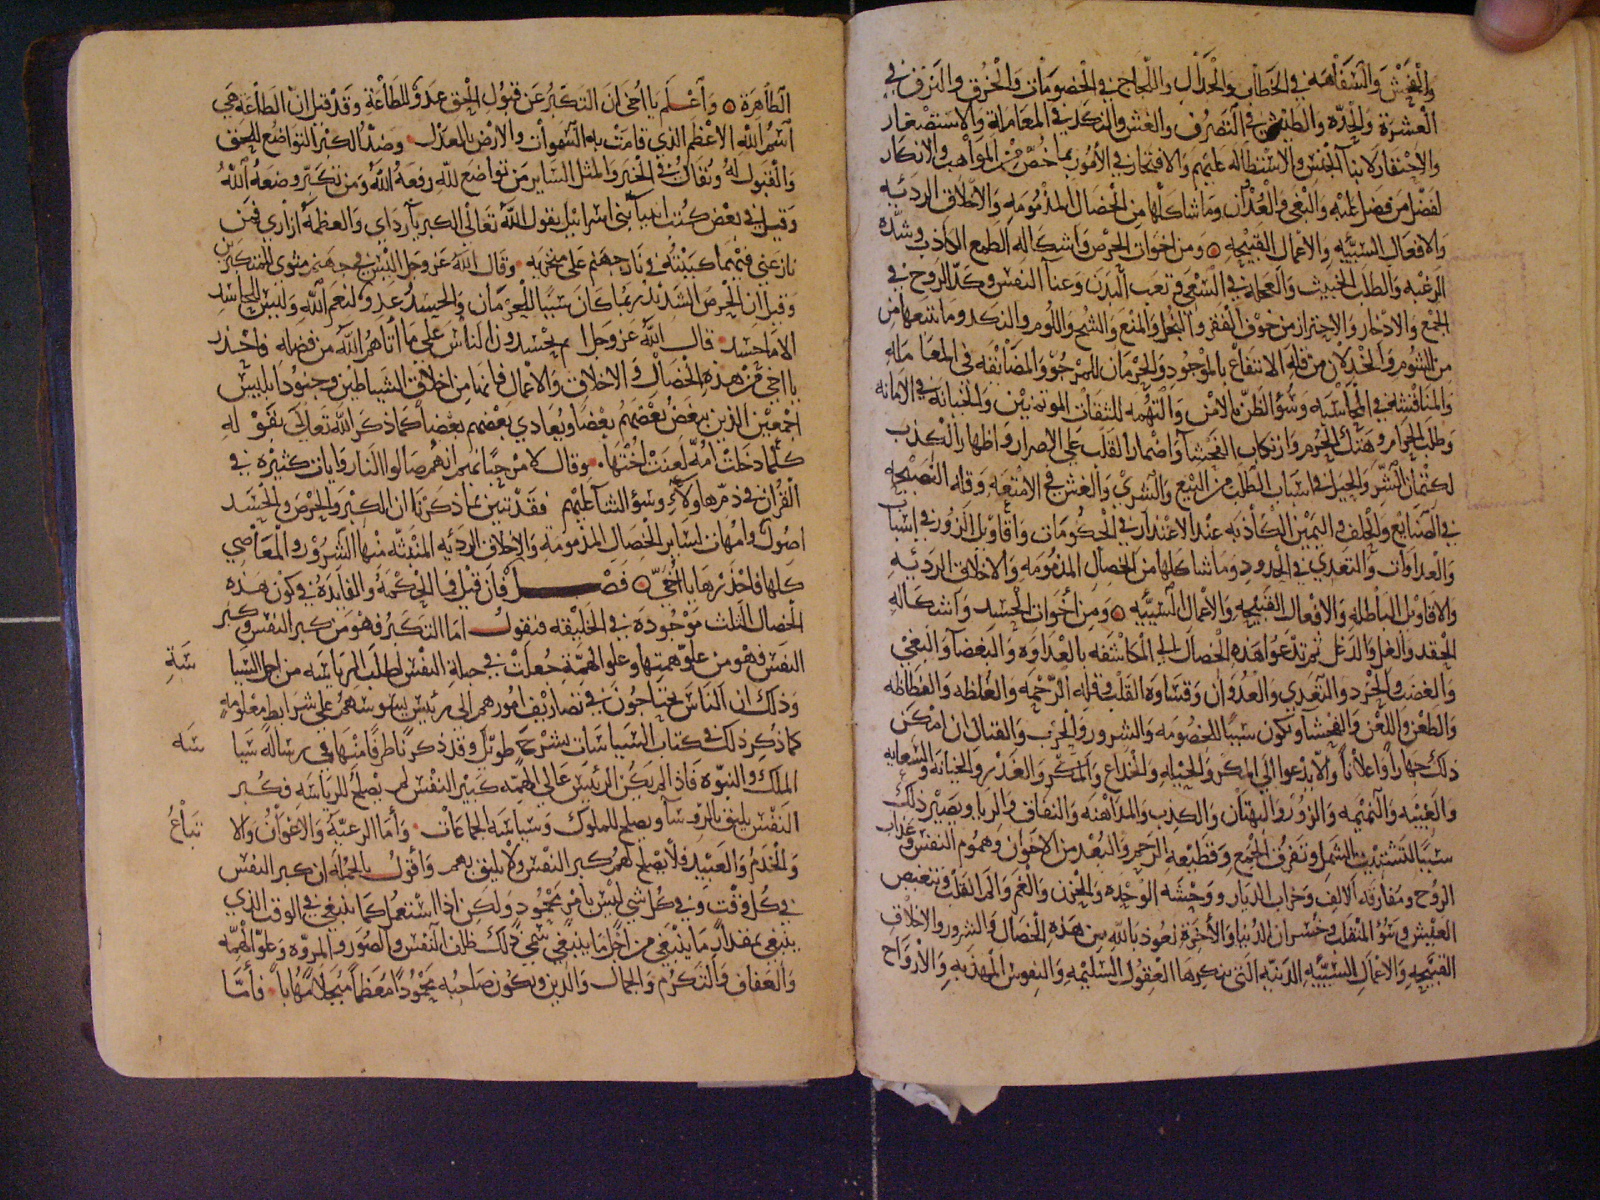 والفحش والسفاهة في الخطاب والجدال واللجاج في الخصومات والخرق والنزق في
العشرة والحدة والطيش في التصرف والغش والنكد في المعاملة والاستصغار
والاحتقار لابنا الجنس والاستطالة عليهم والافتخار في الامور بما خص من المواهب والانكار
لفضل من فضل عليه والبغي والعدوان وما شاكلها من الخصال المذمومه والاخلاق الرديه
والافعال السيئه والاعمال القبيحه ومن اخوات الحرص واشكاله الطمع الكاذب وشده
الرغبه والطلب الخبيث والعجلة في السعي وتعب البدن وعنا النفس وكد الروح في
الجمع والادخار والاحتراز من خوف الفقر والبخل والمنع والشح واللوم والنكد وما يتبعها من
من الشوم والخذلان من قلة الانتفاع بالموجود والحرمان للمرجو والمضايقه في المعامله
والمناقشه في المحاسبه وسؤ الظن بالامين والتهمه للثقات الموتمنين والخيانه في الامانه
وطلب الحرام وهتك الحرم وارتكاب الفحشا واضمار القلب على الاصرار واظهار الكذب
لكتمان الشر والحيل في اسباب الطلب من البيع والشري والغش في الامتعه وقله النصيحه
في الصنايع والحلف واليمين الكاذبه عند الاعتذار في الحكومات واقاويل الزور في اسباب
والعداوات والتعدي في الحدود وما شاكلها من الخصال المذمومه والاخلاق الرديه
والاقاويل الباطله والافعال القبيحه والاعمال السيئه ومن اخوات الحسد واشكاله
الحقد والغل والدغل ثم تدعوا هذه الخصال الى المكاشفه بالعداوه والبغضا والبغي
والغضب والحرد والتعدي والعدوان وقساوه القلب وقله الرحمه والغلظه والفظاظه
والطعن واللعن والفحشا وتكون سببا للخصومه والشرور والحرب والقتال ان امكن
ذلك جهارا واعلانا والا يدعوا الى المكر والحيله والخداع والمكر والغدر والخيانه والسعايه
والغيبه والنميمه والزور والبهتان والكذب والمداهنه والنفاق والريا ويصير ذلك
سببا لتشتيت الشمل وتفرق الجمع وقطيعة الرحم والبعد من الاخوان وهموم النفس وعذاب
الروح ومفارقه الالف وخراب الديار ووحشه الوحده والحزن والغم والم القلب وتنغيص
العيش وسؤ المنقلب وخسران الدنيا والاخرة نعوذ بالله من هذه الخصال والشرور والاخلاق
القبيحه والاعمال السيئه الدنيه التي ينكرها العقول السليمه والنفوس المهذبه والارواح
الطاهرة واعلم يا اخي ان التكبر عن قبول الحق عدو للطاعة وقد قيل ان الطاعة هي
اسم الله الاعظم الذي قامت به السموات والارض بالعدل وضد الكبر التواضع للحق
والقبول له ويقال في الخبر والمثل الساير من تواضع لله رفعه الله ومن تكبر وضعه الله
وقيل في بعض كتب انبيآ بني اسرائيل يقول الله تعالى الكبريآ رداي والعظمة ازاري فمن
نازعني فيهما كببته في نار جهنم على منخريه وقال الله عز وجل اليس في جهنم مثوى للمتكبرين
وقيل ان الحرص الشديد ربما كان سببا للحرمان والحسد عدو لنعم الله وليس للحاسد
الا ما حسد قال الله عز وجل ام يحسدون الناس على ما اتاهم الله من فضله فاحذر
يا اخي من هذه الخصال والاخلاق والاعمال فانها من اخلاق الشياطين وجنود ابليس
اجمعين الذين يبغض بعضهم بعضا ويعادي بعضهم بعضا كما ذكر الله تعالى بقوله
كلما دخلت امة لعنت اختها وقال لا مرحبا بهم انهم صالوا النار وايات كثيره في
القران في ذم هاولآء وسؤ الثنآ عليهم فقد تبين بما ذكرنا ان الكبر والحرص والحسد
اصول وامهات لساير الخصال المذمومة والاخلاق الرديه المنبثه منها الشرور والمعاصي
كلها فاحذرها يا اخي فصل فان قيل فما الحكمة والفايدة في كون هذه
الخصال الثلث موجودة في الخليقه فنقول اما التكبر فهو من كبر النفس وكبر
النفس فهو من علو همتها وعلو الهمة جعلت في جبلة النفس لطلب الرياسه من اجل السيا
سة
وذلك ان الناس يحتاجون في تصاريف امورهم الى رئيس يسوسهم على شرايط معلومة
كما ذكر ذلك في كتاب السياسات بشرح طويل وقد ذكرنا طرفا منها في رسالة سيا
سه
الملك والنبوه فاذا لم يكن الرئيس عالي الهمة كبير النفس لم يصلح للرياسه وكبر
النفس يليق بالروسآ ويصلح للملوك وسياسة الجماعات واما الرعية والاعوان والا
تباع
والخدم والعبيد فلا يصلح لهم كبر النفس ولا يليق بهم واقول بالجملة ان كبر النفس
في كل وقت وفي كل شي ليس بامر محمود ولكن اذا استعمل كما ينبغي في الوقت الذي
ينبغي بمقدار ما ينبغي من اجل ما ينبغي سمي ذلك ظلف النفس والصور والمروه وعلو الهمه
والعفاف والتكرم والجمال والدين ويكون صاحبه محمودا معظما مبجلا مهابا فأمّا